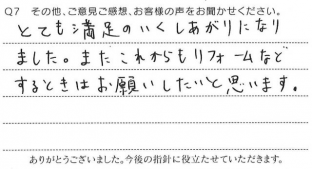 Q7 その他、ご意見ご感想、お客様の声をお聞かせください。
とても満足のいくしあがりになり
ました。またこれからもリフォームなど
するときはお願いしたいと思います。
ありがとうございました。今後の指針に役立たせていただきます。